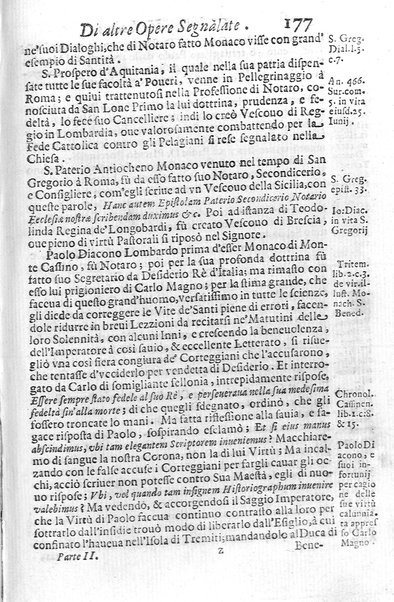 Di altre Opere Segnalate. 177
ne'suoi Dialoghi, che di Notaro fatto Monaco visse con grand'
esempio di Santità.
S. Prospero d'Aquitania, il quale nella sua patria dispen-
sate tutte le sue facoltà a' Poueri, venne in Pellegrinaggio à
Roma; e quiui trattenutosi nella Professione di Notaro, co-
nosciuta da San Leone Primo la lui dottrina, prudenza, e fe-
deltà, lo fece suo Cancelliere; indi lo creò Vescouo di Reg-
gio in Lombardia, oue valorosamente combattendo per la
Fede Cattolica contro gli Pelagiani si rese segnalato nella
Chiesa.
S. Paterio Antiocheno Monaco venuto nel tempo di San
Gregorio à Roma, fù da esso fatto suo Notaro, Secondicerio,
e Consigliere, com'egli scrine ad vn Vescouo della Sicilia, con
queste parole, Hanc autem Epistolam Paterio Secondicerio Notario
Ecclesiæ nostræ scribendam duximus &c. Poi ad istanza di Teodo-
linda Regina de'Longobardi, fù creato Vescouo di Brescia;
oue pieno di virtù Pastorali si riposò nel Signore.
Paolo Diacono Lombardo prima d'esser Monaco di Mon-
te Cassino, fù Notaro; poi per la sua profonda dottrina fù
fatto suo Segretario da Desiderio Rè d'Italia; ma rimasto con
esso lui prigioniero di Carlo Magno; per la stima grande, che
faceua di questo grand'huomo, versatissimo in tutte le scienze,
gli diede da correggere le Vite de'Santi piene di errori, facen-
dole ridurre in breui Lezzioni da recitarsi ne'Matutini delle
loro Solennità, con alcuni Inni, e crescendo la beneuolenza,
dell'Imperatore à così sauio, & eccellente Letterato, si risue-
gliò vna così fiera congiura de' Correggiani che l'accusarono,
che tentasse d'vcciderlo per vendetta di Desiderio. Et interro-
gato da Carlo di somigliante fellonia, intrepidamente rispose,
Essere sempre stato fedele al suo Rè, e perseuerana nella sua medesma
fedeltà sin'alla morte; di che quegli sdegnato, ordinò, che gli
fossero troncate lo mani. Ma fatta riflessione alla sauia, e sa-
gace risposta di Paolo, sospirando esclamò; Et si eius manus
abscindimus, vbi tam elegantem Scriptorem inueniemus? Macchiare-
mo di sangue la nostra Corona, non la di lui Virtù; Ma incal-
zando con le false accuse i Correggiani per fargli cauar gli oc-
chi, acciò scriuer non potesse contro Sua Maestà, egli di nuo-
uo rispose; Vbi, vel quando tam insignem Historiographum inuenire
valebimus? Ma vedendo, & accorgendosi il Saggio Imperatore,
che la Virtù di Paolo faceua continuo contrasto con questi
sottrarlo dall'insidie trouò modo di liberarlo dall'Esiglio, à cui
confinato l'haueua nell'Isola di Tremiti, mandandolo al Duca di
Parte II. z Bene-
S. Greg.
Dial.l.5.
c.7.
An. 466.
Sur.com.
5. in vita
eiusd.25.
Iunij.
S. Greg.
epist. 33.
Io: Diac.
in vita S.
Gregorij
Tritem.
lib.2.c.3.
de vir.il-
lust. Mo-
nach. S.
Bened.
Chronol.
Cassinen.
lib.1.c.8.
& 15.
Paolo Di
acono, e
suoi in-
fortunij
per cagio
ne delle
sue virtù
calunnia-
ta appres
so Carlo
Magno.